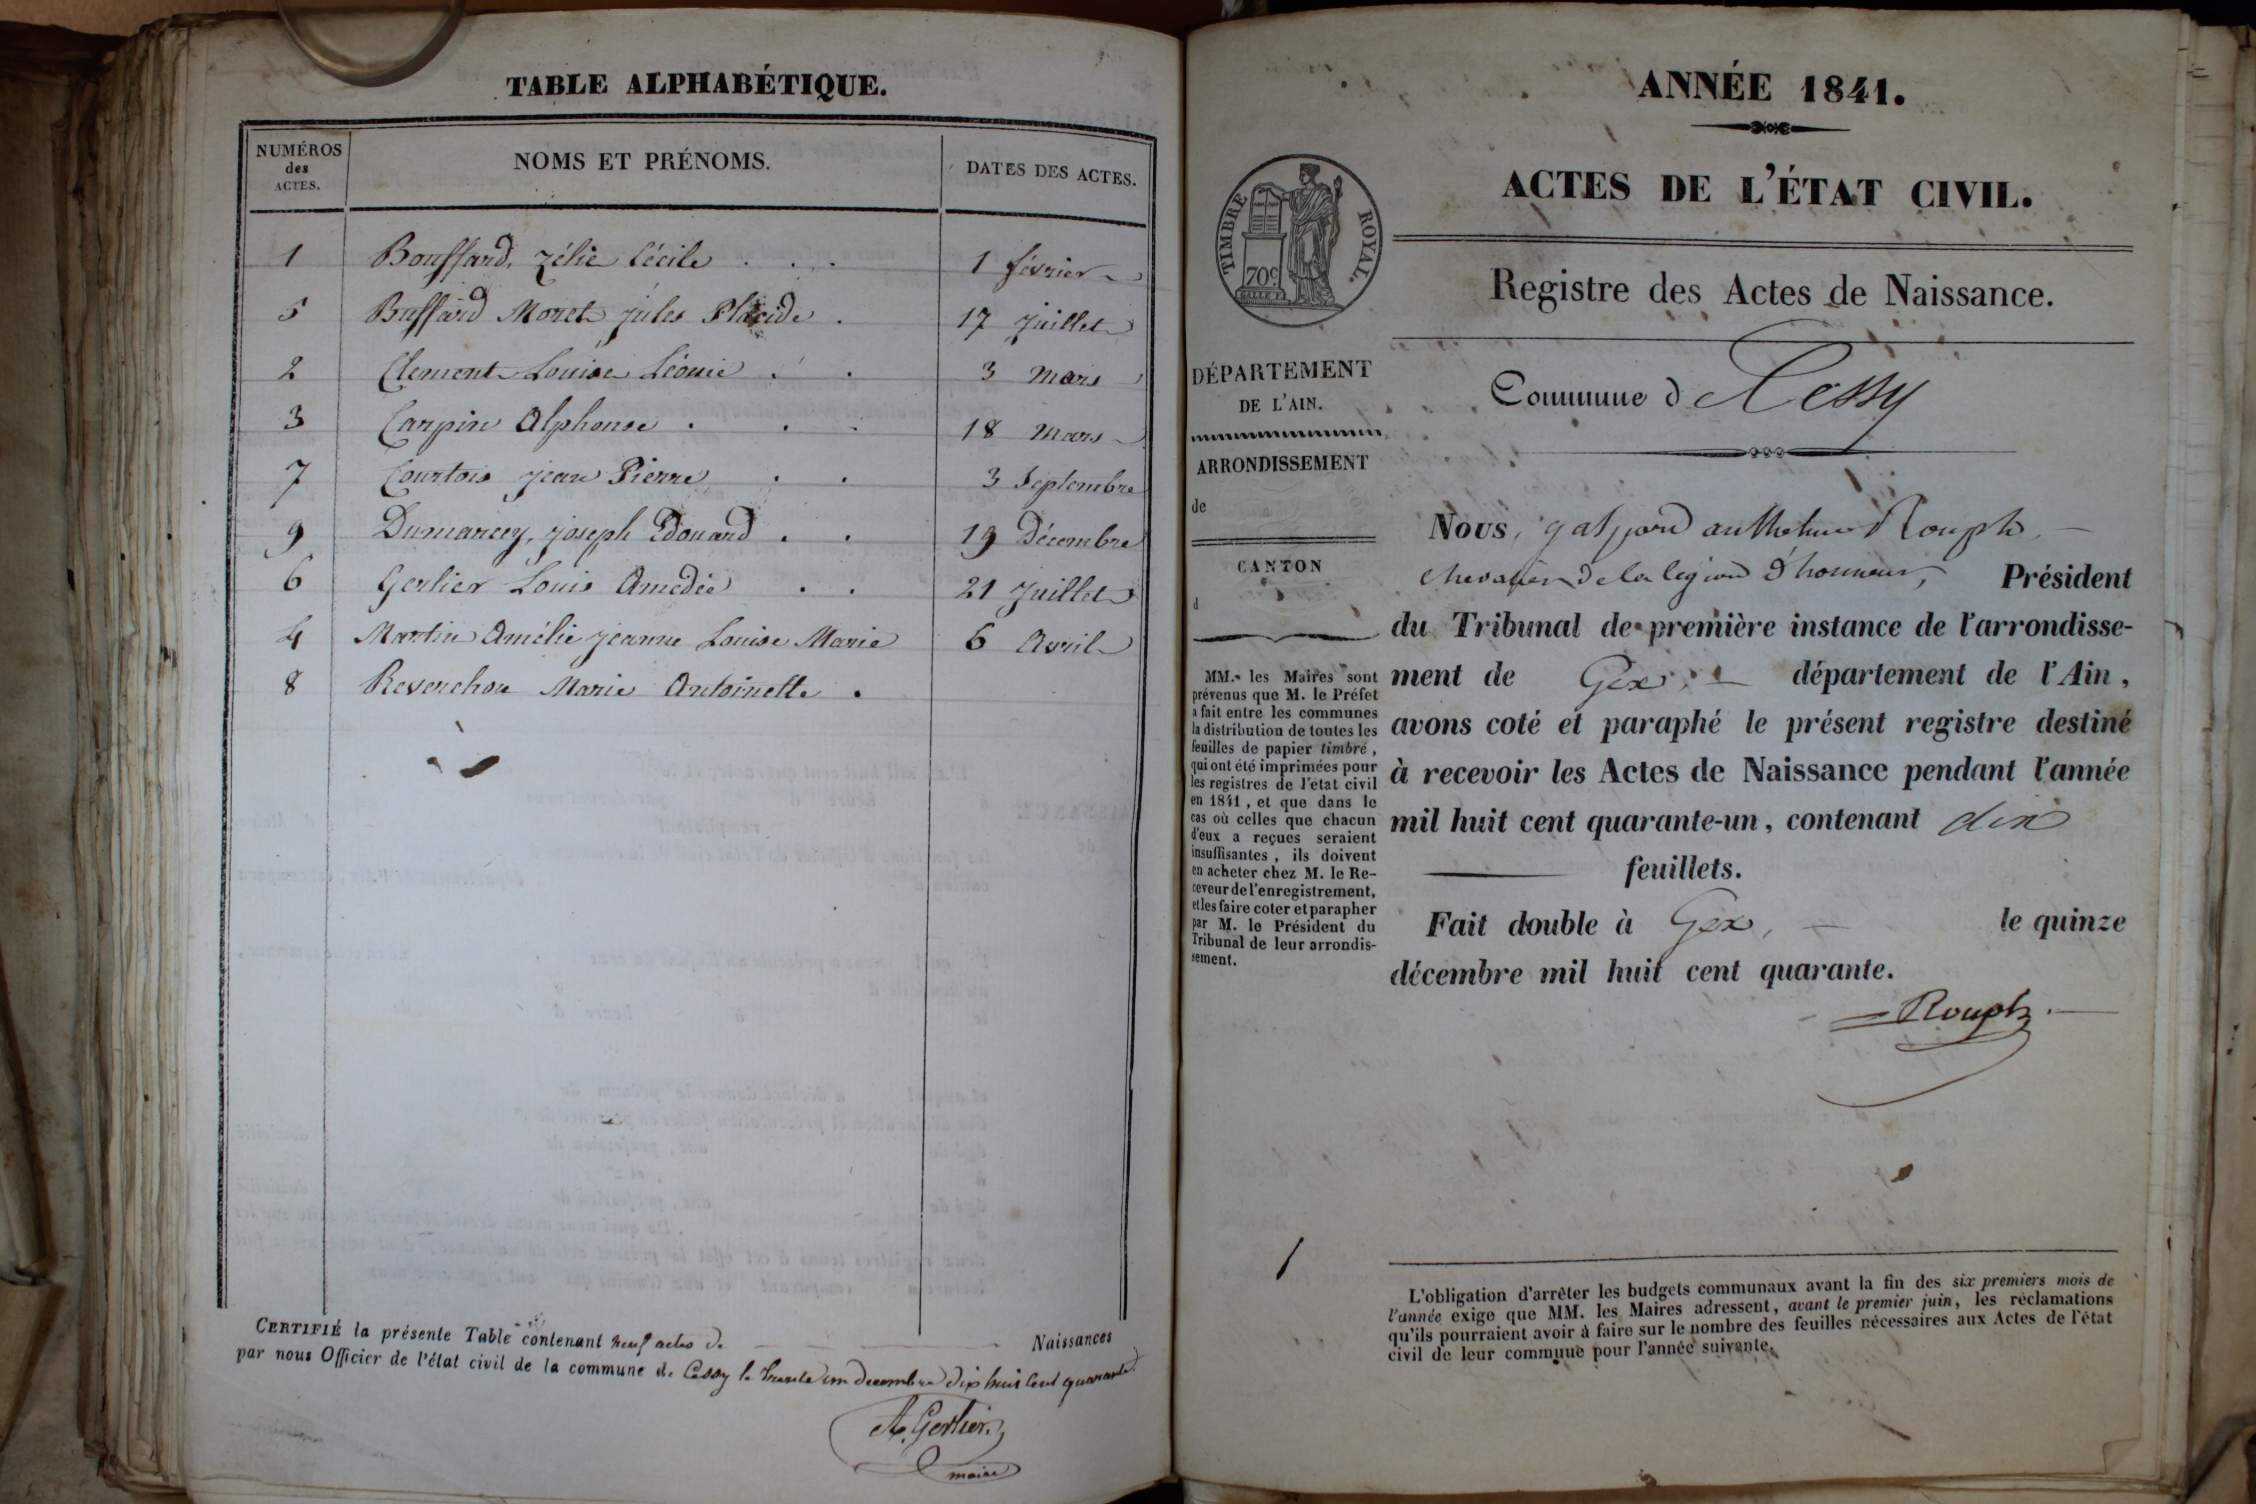 TABLE ALPHABÉTIQUE.
NUMÉROS
des
ACTES.
NOMS ET PRÉNOMS.
DATES DES ACTES.
1 Bouffard, Zélie Cécile . . . 1 février
5 Buffard Moret Jules Placide . 17 Juillet
2 Clement Louise Léonie . . 3 Mars
3 Carpin Alphonse . . . 18 Mars
7 Courtois Jean Pierre . . 3 Septembre
9 Dumarcey, Joseph Edouard . . 19 Décembre
6 Gerlier Louis Amédée . . 21 Juillet
4 Martin Amélie Jeanne Louise Marie 6 Avril
8 Reverchon Marie Antoinette .
CERTIFIÉ la présente Table contenant neuf actes de Naissances
par nous Officier de l'état civil de la commune de Cessy le trente un decembre dix huit cent quarante.
A. Gerlier
maire
ANNÉE 1841.
ACTES DE L'ÉTAT CIVIL.
TIMBRE ROYAL.
70c
Registre des Actes de Naissance.
Commune d Cessy
DÉPARTEMENT
DE L'AIN.
ARRONDISSEMENT
de
CANTON
d
MM. les Maires sont
prévenus que M. le Préfet
a fait entre les communes
la distribution de toutes les
feuilles de papier timbré,
qui ont été imprimées pour
les registres de l'état civil
en 1841, et que dans le
cas où celles que chacun
d'eux a reçues seraient
insuffisantes, ils doivent
en acheter chez M. le Re-
ceveur de l'enregistrement,
et les faire coter et parapher
par M. le Président du
Tribunal de leur arrondis-
sement.
Nous, gaspard anthelme Rouph
chevalier de la legion d'honneur, Président
du Tribunal de première instance de l'arrondisse-
ment de Gex, département de l'Ain,
avons coté et paraphé le présent registre destiné
à recevoir les Actes de Naissance pendant l'année
mil huit cent quarante-un, contenant dix
feuillets.
Fait double à Gex, le quinze
décembre mil huit cent quarante.
Rouph
1
L'obligation d'arrêter les budgets communaux avant la fin des six premiers mois de
l'année exige que MM. les Maires adressent, avant le premier juin, les réclamations
qu'ils pourraient avoir à faire sur le nombre des feuilles nécessaires aux Actes de l'état
civil de leur commune pour l'année suivante.